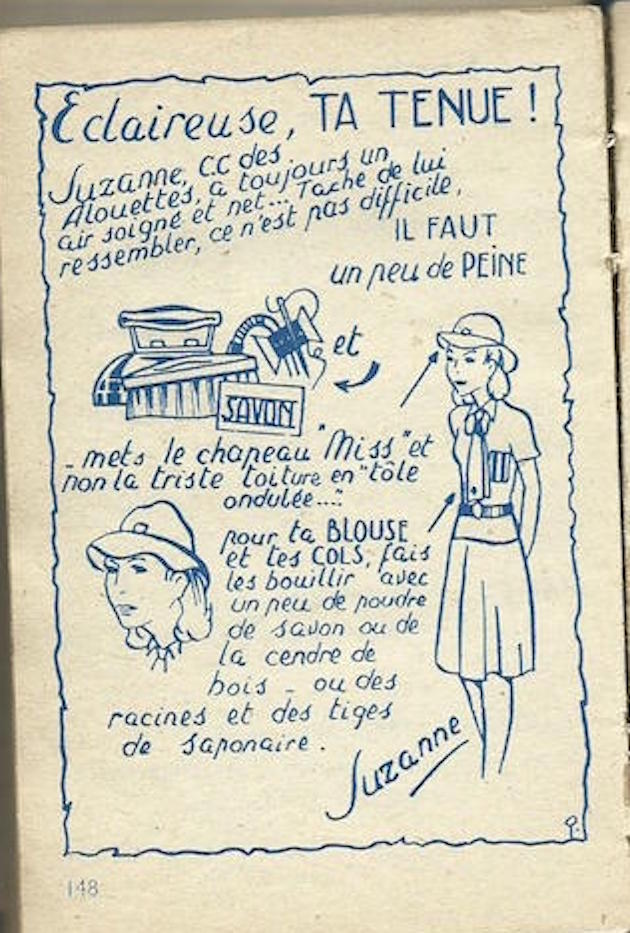 Eclaireuse, TA TENUE !
Suzanne, C.C des
Alouettes, a toujours un
air soigné et net... Tache de lui
ressembler, ce n'est pas difficile,
IL FAUT
un peu de PEINE
et
SAVON
_ mets le chapeau "Miss" et
non la triste toiture en "tôle
ondulée...".
pour ta BLOUSE
et tes COLS, fais
les bouillir avec
un peu de poudre
de savon ou de
la cendre de
bois _ ou des
racines et des tiges
de saponaire.
Suzanne
148